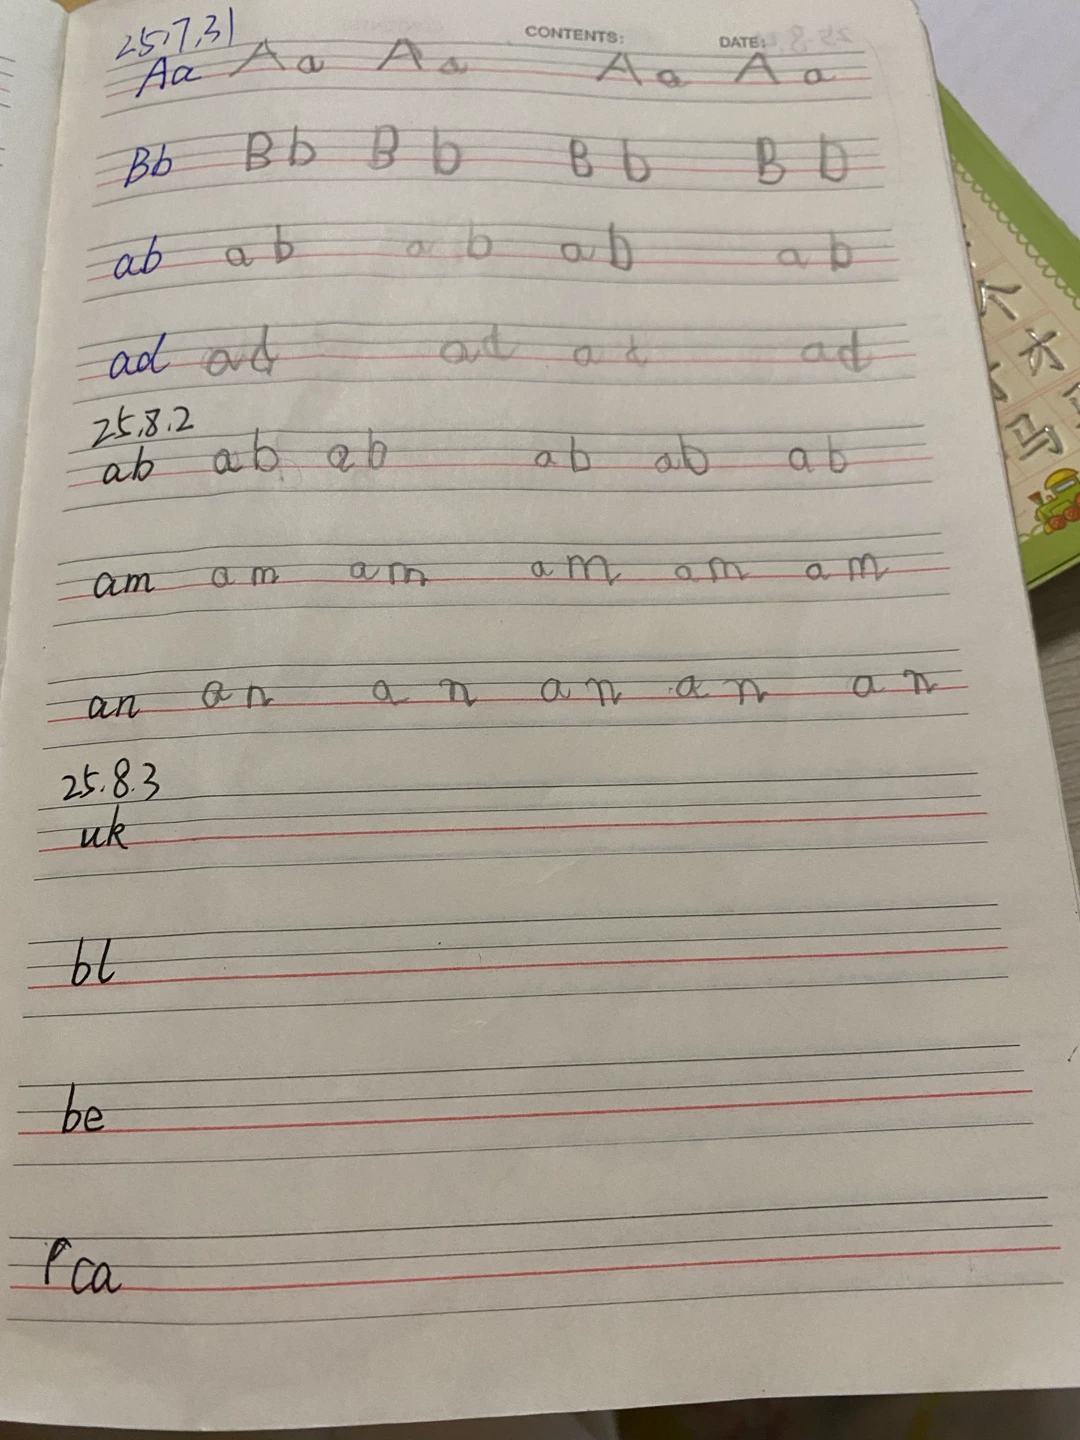 25.7.31 CONTENTS: DATE:
Aa Aa Aa Aa Aa
Bb Bb Bb Bb Bb
ab ab ab ab ab
ad ad ad ad ad
25.8.2
ab ab ab ab ab ab
am am am am am am
an an an an an an
25.8.3
uk
bl
be
ca
马